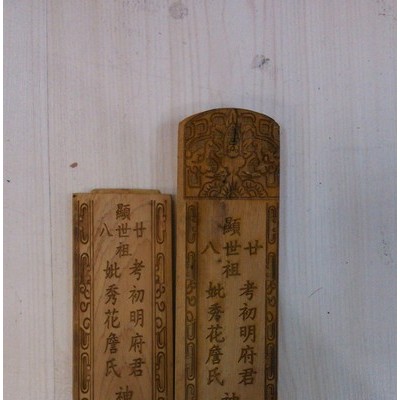 顯
廿八世
祖
考初明府君
妣秀花詹氏
顯
廿八世
祖
考初明府君
妣秀花詹氏